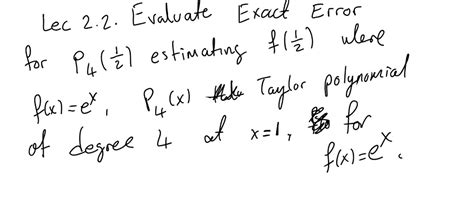 Lec 2.2. Evaluate Exact Error
for P₄(½) estimating f(½) where
f(x)=eˣ, P₄(x) Taylor polynomial
of degree 4 at x=1, for
f(x)=eˣ.